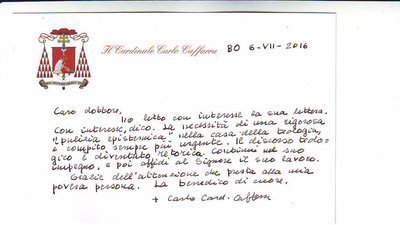 Il Cardinale Carlo Caffarra
BO 6-VII-2016
Caro dottore,
ho letto con interesse la sua lettera.
Con interesse, dico. La necessità di una rigorosa
"pulizia epistemica" nella casa della teologia,
è compito sempre più urgente. Il discorso teolo-
gico è diventato retorica. Continui nel suo
impegno, e poi affidi al Signore il suo lavoro.
Grazie dell'attenzione che presta alla mia
povera persona. La benedico di cuore.
+ Carlo Card. Caffarra